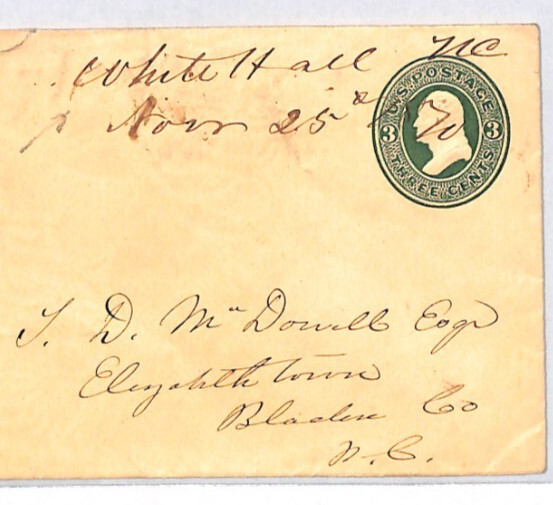 White Hall NC
Novr 25th /70
U.S. POSTAGE
3 3
THREE CENTS
T. D. McDowell Esqr
Elizabethtown
Bladen Co
N.C.